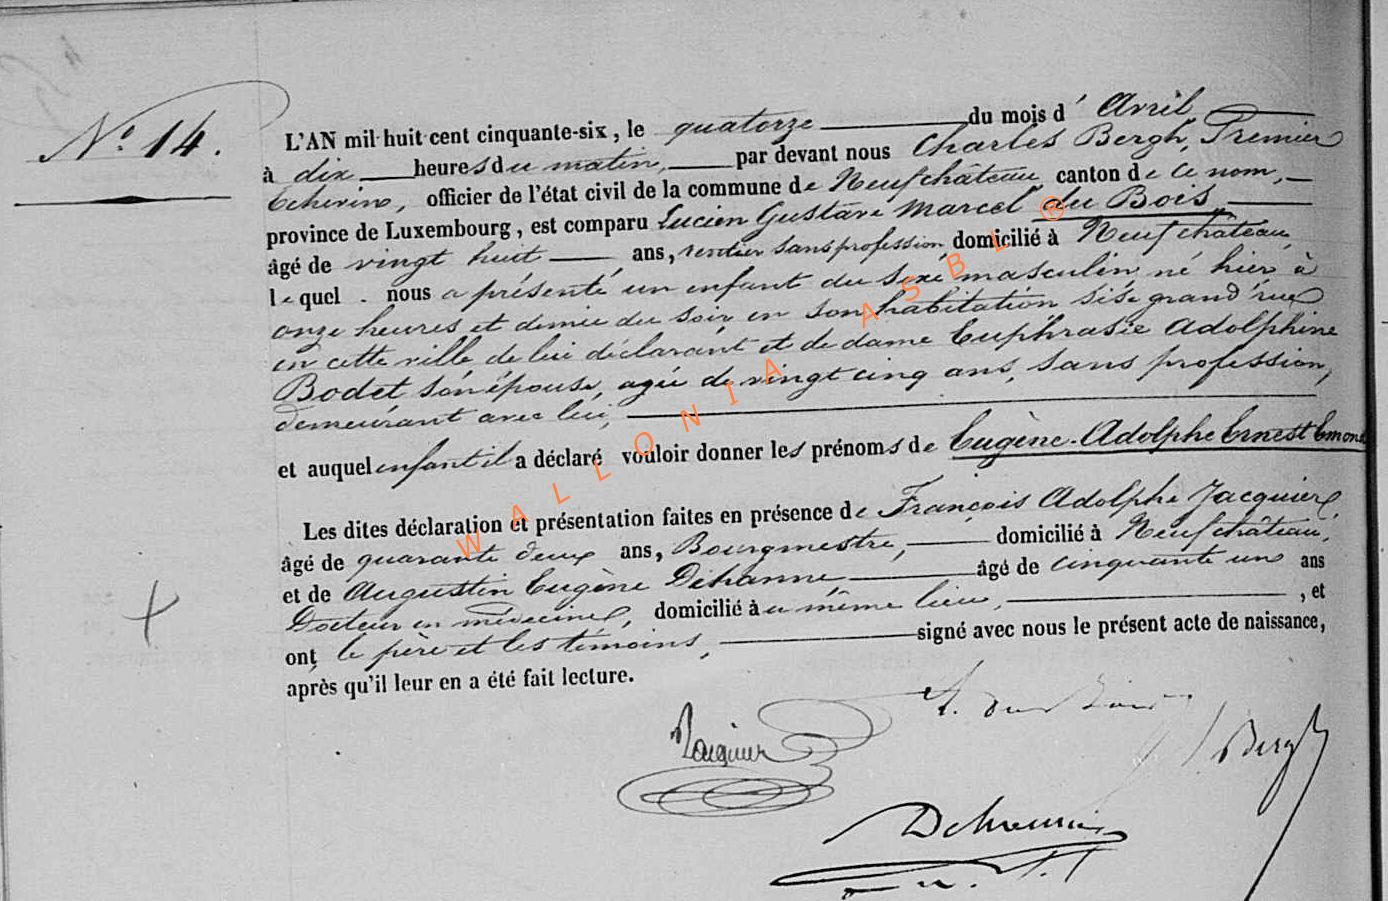 N.° 14.
L'AN mil huit cent cinquante-six, le quatorze du mois d' Avril,
à dix heures du matin, par devant nous Charles Bergh, Premier
Echevin, officier de l'état civil de la commune de Neufchâteau canton de ce nom,
province de Luxembourg, est comparu Lucien Gustave Marcel du Bois,
âgé de vingt huit ans, rentier sans profession, domicilié à Neufchâteau,
lequel nous a présenté un enfant du sexe masculin né hier à
onze heures et demie du soir en son habitation sise grand'rue
en cette ville de lui déclarant et de dame Euphrasie Adolphine
Bodet son épouse, agée de vingt cinq ans, sans profession,
demeurant avec lui,
et auquel enfant il a déclaré vouloir donner les prénoms de Eugène-Adolphe Ernest Emond
Les dites déclaration et présentation faites en présence de François Adolphe Jacquier,
âgé de quarante deux ans, Bourgmestre, domicilié à Neufchâteau,
et de Augustin Eugène Dehanne âgé de cinquante un ans
Docteur en médecine, domicilié au même lieu, , et
ont le père et les témoins, signé avec nous le présent acte de naissance,
après qu'il leur en a été fait lecture.
du Bois
Jacquier
Bergh
WALLONIA ASBL ®